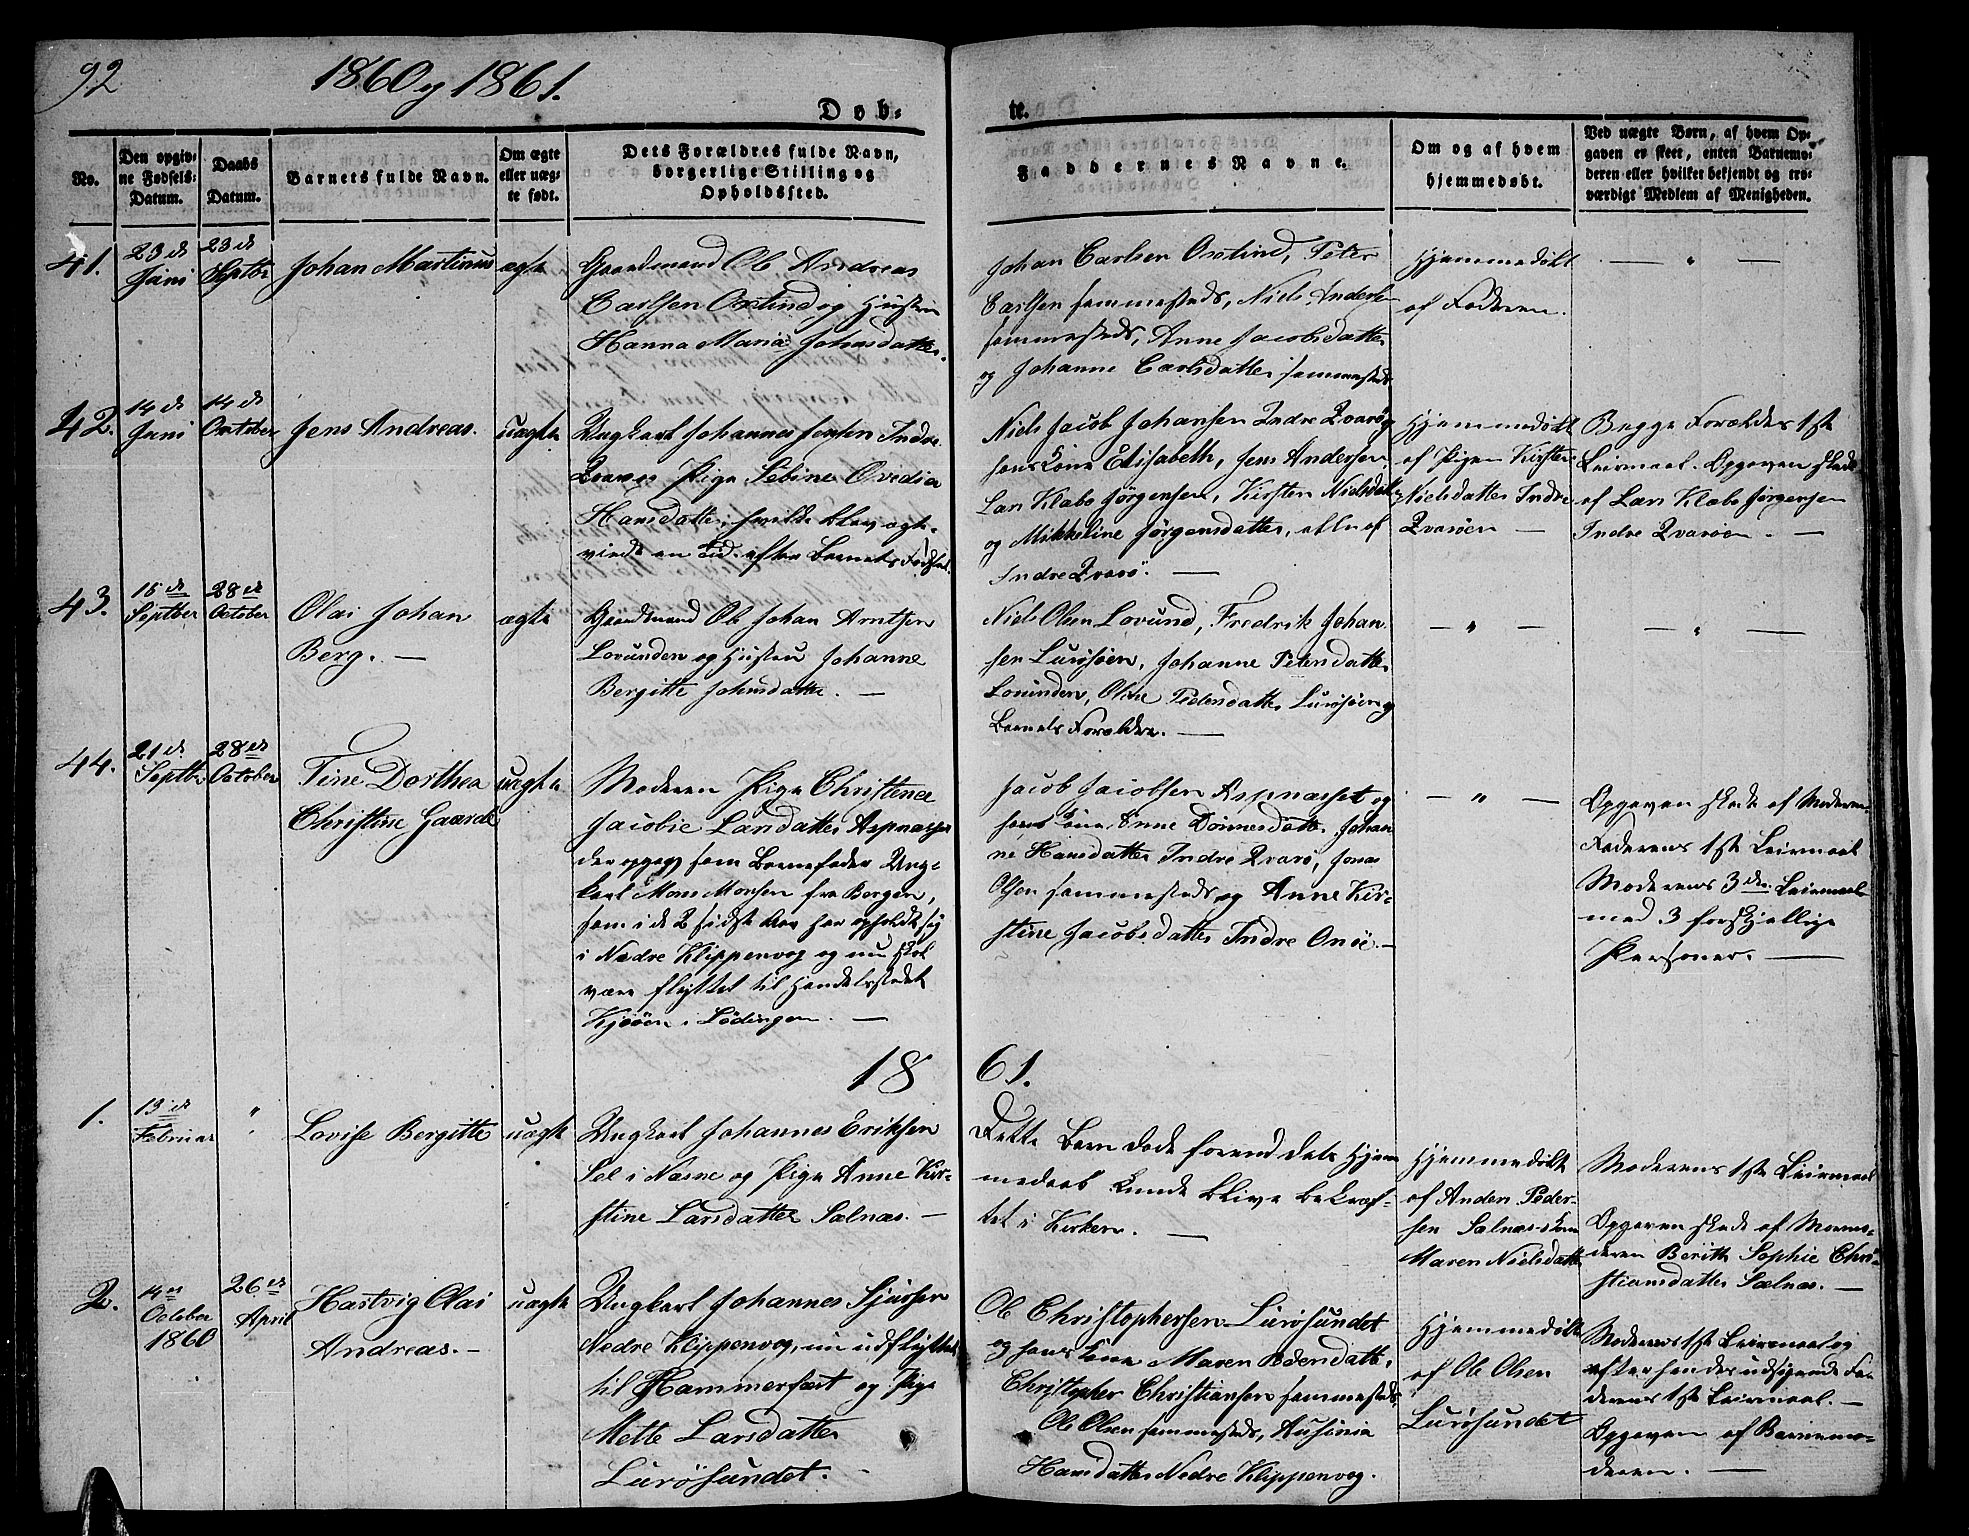 92
1860 og 1861.
Døb-
te.
No.
Den opgiv-
ne Fødsels-
Datum.
Daabs
Datum.
Barnets fulde Navn.
Om ægte
eller uæg-
te født.
Dets Forældres fulde Navn,
borgerlige Stilling og
Opholdssted.
Faddernes Navne.
Om og af hvem
hjemmedøbt.
Ved uægte Børn, af hvem Op-
gaven er skeet, enten Barnemo-
deren eller hvilket bekjendt og tro-
værdigt Medlem af Menigheden.
41.
23de
Juni
23de
Septbr
Johan Martinus
ægte
Gaardmand Ole Andreas
Carlsen Oxtind og Hustru
Hanna Maria Johnsdatter.
Johan Carlsen Oxtind, Peter
Carlsen sammesteds, Niels Anders
sammesteds, Anne Jacobsdatter
og Johanne Carlsdatter sammesteds
Hjemmedøbt
af Faderen.
— " —
42.
14de
Juni
14de
October
Jens Andreas.
uægte
Ungkarl Johannes Jensen Indre
Qvarøe Pige Sebine Ovedia
Hansdatter, hvilke blev ægte-
viede en Tid efter Barnets Fødsel.
Niels Jacob Johansen Indre Qvarø og
hans Kone Elisabeth, Jens Andersen
Lars Klabo Jörgensen, Kirsten Nielsdatter
og Mikkeline Jørgensdatter, alle af
Indre Qvarø. —
Hjemmedøbt
af Pigen Kirsten
Nielsdatter Indre
Qvarøen —
Begge Forældres 1ste
Leiermaal. Opgaven skede
af Lars Klabo Jørgensen
Indre Qvarøen. —
43.
15de
Septber
28de
October
Olai Johan
Berg. —
ægte
Gaardmand Ole Johan Arntsen
Lovunden og Hustru Johanne
Bergitte Johnsdatter. —
Niels Olsen Lovund, Fredrik Johan-
sen Lurøsøen, Johanne Petersdatter
Lovunden, Oline Pedersdatter Lurøsøen og
Barnets Forældre. —
— " —
— " —
44.
21de
Septbr
28de
October
Tine Dorthea
Christine Gaarde
uægte
Moderen Pige Christence
Jacobie Larsdatter Aspnæsset
der opgav som Barnefader Ung-
karl Mons Monsen fra Bergen,
som i de 2 sidste Aar har opholdt sig
i Nedre Klippenvog og nu skal
være flyttet til Handelsstedet
Kjøøen i Lødingen. —
Jacob Jacobsen Aspnæsset og
hans Kone Anne Dønnesdatter, Johan-
ne Hansdatter Indre Qvarø, Jonas
Olsen sammesteds og Anne Kir-
stine Jacobsdatter Indre Onøe. —
— " —
Opgaven skede af Moderen
Faderens 1ste Leirmaal
Moderens 3die Leirmaal
med 3 forskjellige
Personer. —
18
61.
1.
13de
Februar
"
Lovise Bergitte
uægte
Ungkarl Johannes Eriksen
Sel i Næsne og Pige Anne Kir-
stine Larsdatter Sælnæs. —
Dette Barn døde forend dets Hjem-
medaab kunde blive bekræf-
tet i Kirken. —
Hjemmedøbt
af Anders Peder-
sen Sælnæs Kone
Maren Nielsdatter
Moderens 1ste Leirmaal
Opgaven skede af Mormo-
deren Berith Sophie Chri-
stiansdatter Sælnæs. —
2.
14de
October
1860
26de
April
Hartvig Olai
Andreas. —
uægte
Ungkarl Johannes Sjursen
Nedre Klippenvog, nu udflyttet
til Hammerfæst og Pige
Mette Larsdatter
Lurøsundet. —
Ole Christophersen Lurøsundet
og hans Kone Maren Pedersdatter,
Christopher Christiansen sammesteds
Ole Olsen sammesteds,
Hansdatter Nedre Klippenvog.
Hjemmedøbt
af Ole Olsen
Lurøsundet
Moderens 1ste Leirmaal og
efter hendes udsigende Fa-
derens 1ste Leirmaal. —
Opgaven af Barnemo-
deren. —